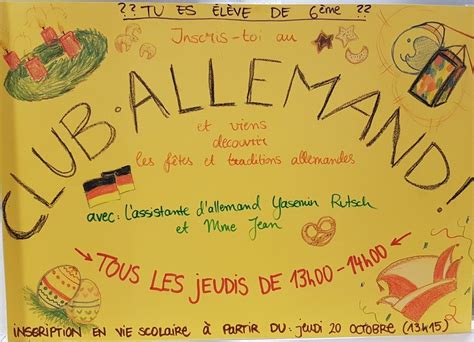 ?? TU ES ÉLÈVE DE 6ème ??
Inscris-toi au
CLUB · ALLEMAND !
et viens
découvrir
les fêtes et traditions allemandes
avec : l'assistante d'allemand Yasemin Rutsch
et Mme Jean
→ TOUS LES JEUDIS DE 13h00 - 14h00 ←
INSCRIPTION EN VIE SCOLAIRE À PARTIR DU : jeudi 20 OCTOBRE (13h15)